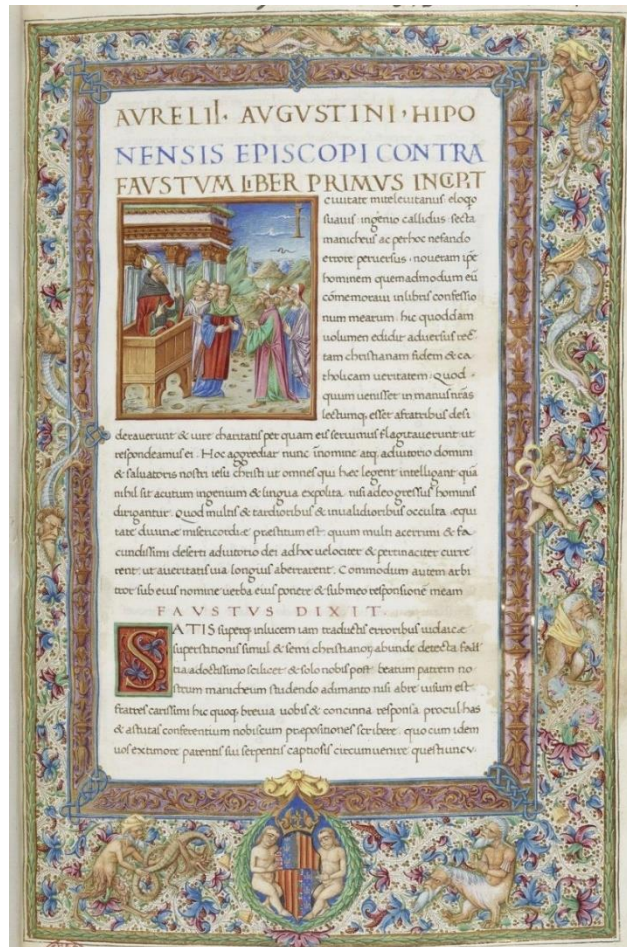 AVRELII · AVGVSTINI · HIPO
NENSIS EPISCOPI CONTRA
FAVSTVM LIBER PRIMVS INCIPIT
ciuitate mileuitanus eloqo
suauis · ingenio callidus secta
manicheus ac perhoc nefando
errore peruersus · noueram ipe
hominem quemadmodum eū
cōmemoraui inlibris confessio
num mearum · hic quoddam
uolumen edidit aduersus rec
tam christianam fidem & ca
tholicam ueritatem · Quod
quum uenisset in manus nr̄as
lectumq; esset afratribus desi
derauerunt & iure charitatis per quam eis seruimus flagitauerunt ut
respondeamus ei · Hoc aggrediar nunc īnomine atq; adiutorio domini
& saluatoris nostri iesu christi ut omnes qui hec legent intelligant quā
nihil sit acutum ingenium & lingua expolita nisi adeo gressus hominis
dirigantur · Quod multis & tardioribus & inualidioribus occulta equi
tate diuinæ misericordiæ præstitum est · quum multi acerrimi & fa
cundissimi deserti adiutorio dei adhoc uelociter & pertinaciter curre
rent ut aueritatis uia longius aberrarent · Commodum autem arbi
tror sub eius nomine uerba eius ponere & sub meo responsionē meam
FAVSTVS DIXIT
SATIS superq; inlucem iam traductis erroribus iudaicæ
superstitionis simul & semi christianorum abunde detecta falla
tia adoctissimo scilicet & solo nobis post beatum patrem no
strum manicheum studendo adimanto nisi abre uisum est
fratres carissimi hic quoq; breuia uobis & concinna responsa procul has
& astutas conferentium nobiscum præpositiones scribere quo cum idem
uos extimore parentis sui serpentis captiosis circumuenire questiuncu